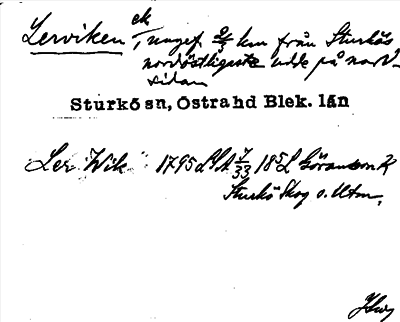 Lerviken ek T, ungef. 2/3 km från Sturkös
nordöstligaste udde på nord-
sidan
Sturkö sn, Östra hd Blek. län
"Ler Wik" 1795 LSA 7/33 1852 Göransson R
Sturkö Skog o. Utm.